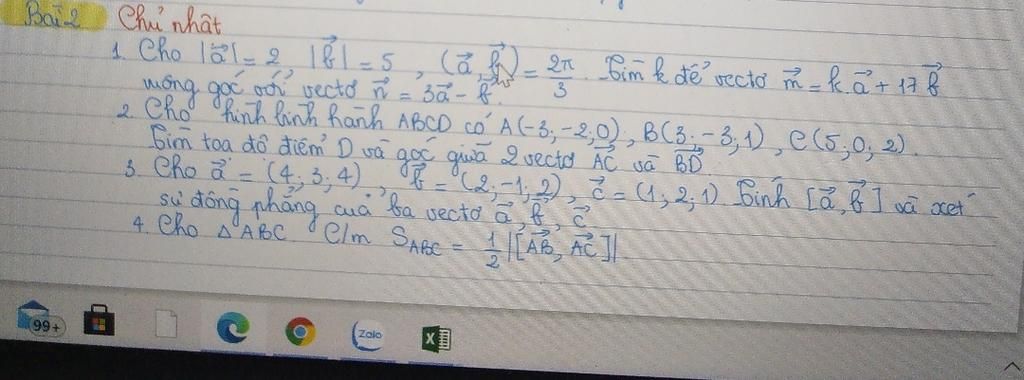 Bài 2 Chủ nhật
1. Cho |a⃗| = 2 |b⃗| = 5 , (a⃗, b⃗) = 2π/3. Tìm k để vectơ m⃗ = k a⃗ + 17 b⃗
vuông góc với vectơ n⃗ = 3a⃗ - b⃗.
2. Cho hình bình hành ABCD có A(-3; -2; 0), B(3; -3; 1), C(5; 0; 2).
Tìm tọa độ điểm D và góc giữa 2 vectơ AC⃗ và BD⃗
3. Cho a⃗ = (4; 3; 4), b⃗ = (2; -1; 2), c⃗ = (1; 2; 1) Tính [a⃗, b⃗] và xét
sự đồng phẳng của ba vectơ a⃗, b⃗, c⃗
4. Cho △ABC C/m S_ABC = 1/2 |[AB⃗, AC⃗]|
99+
Zalo